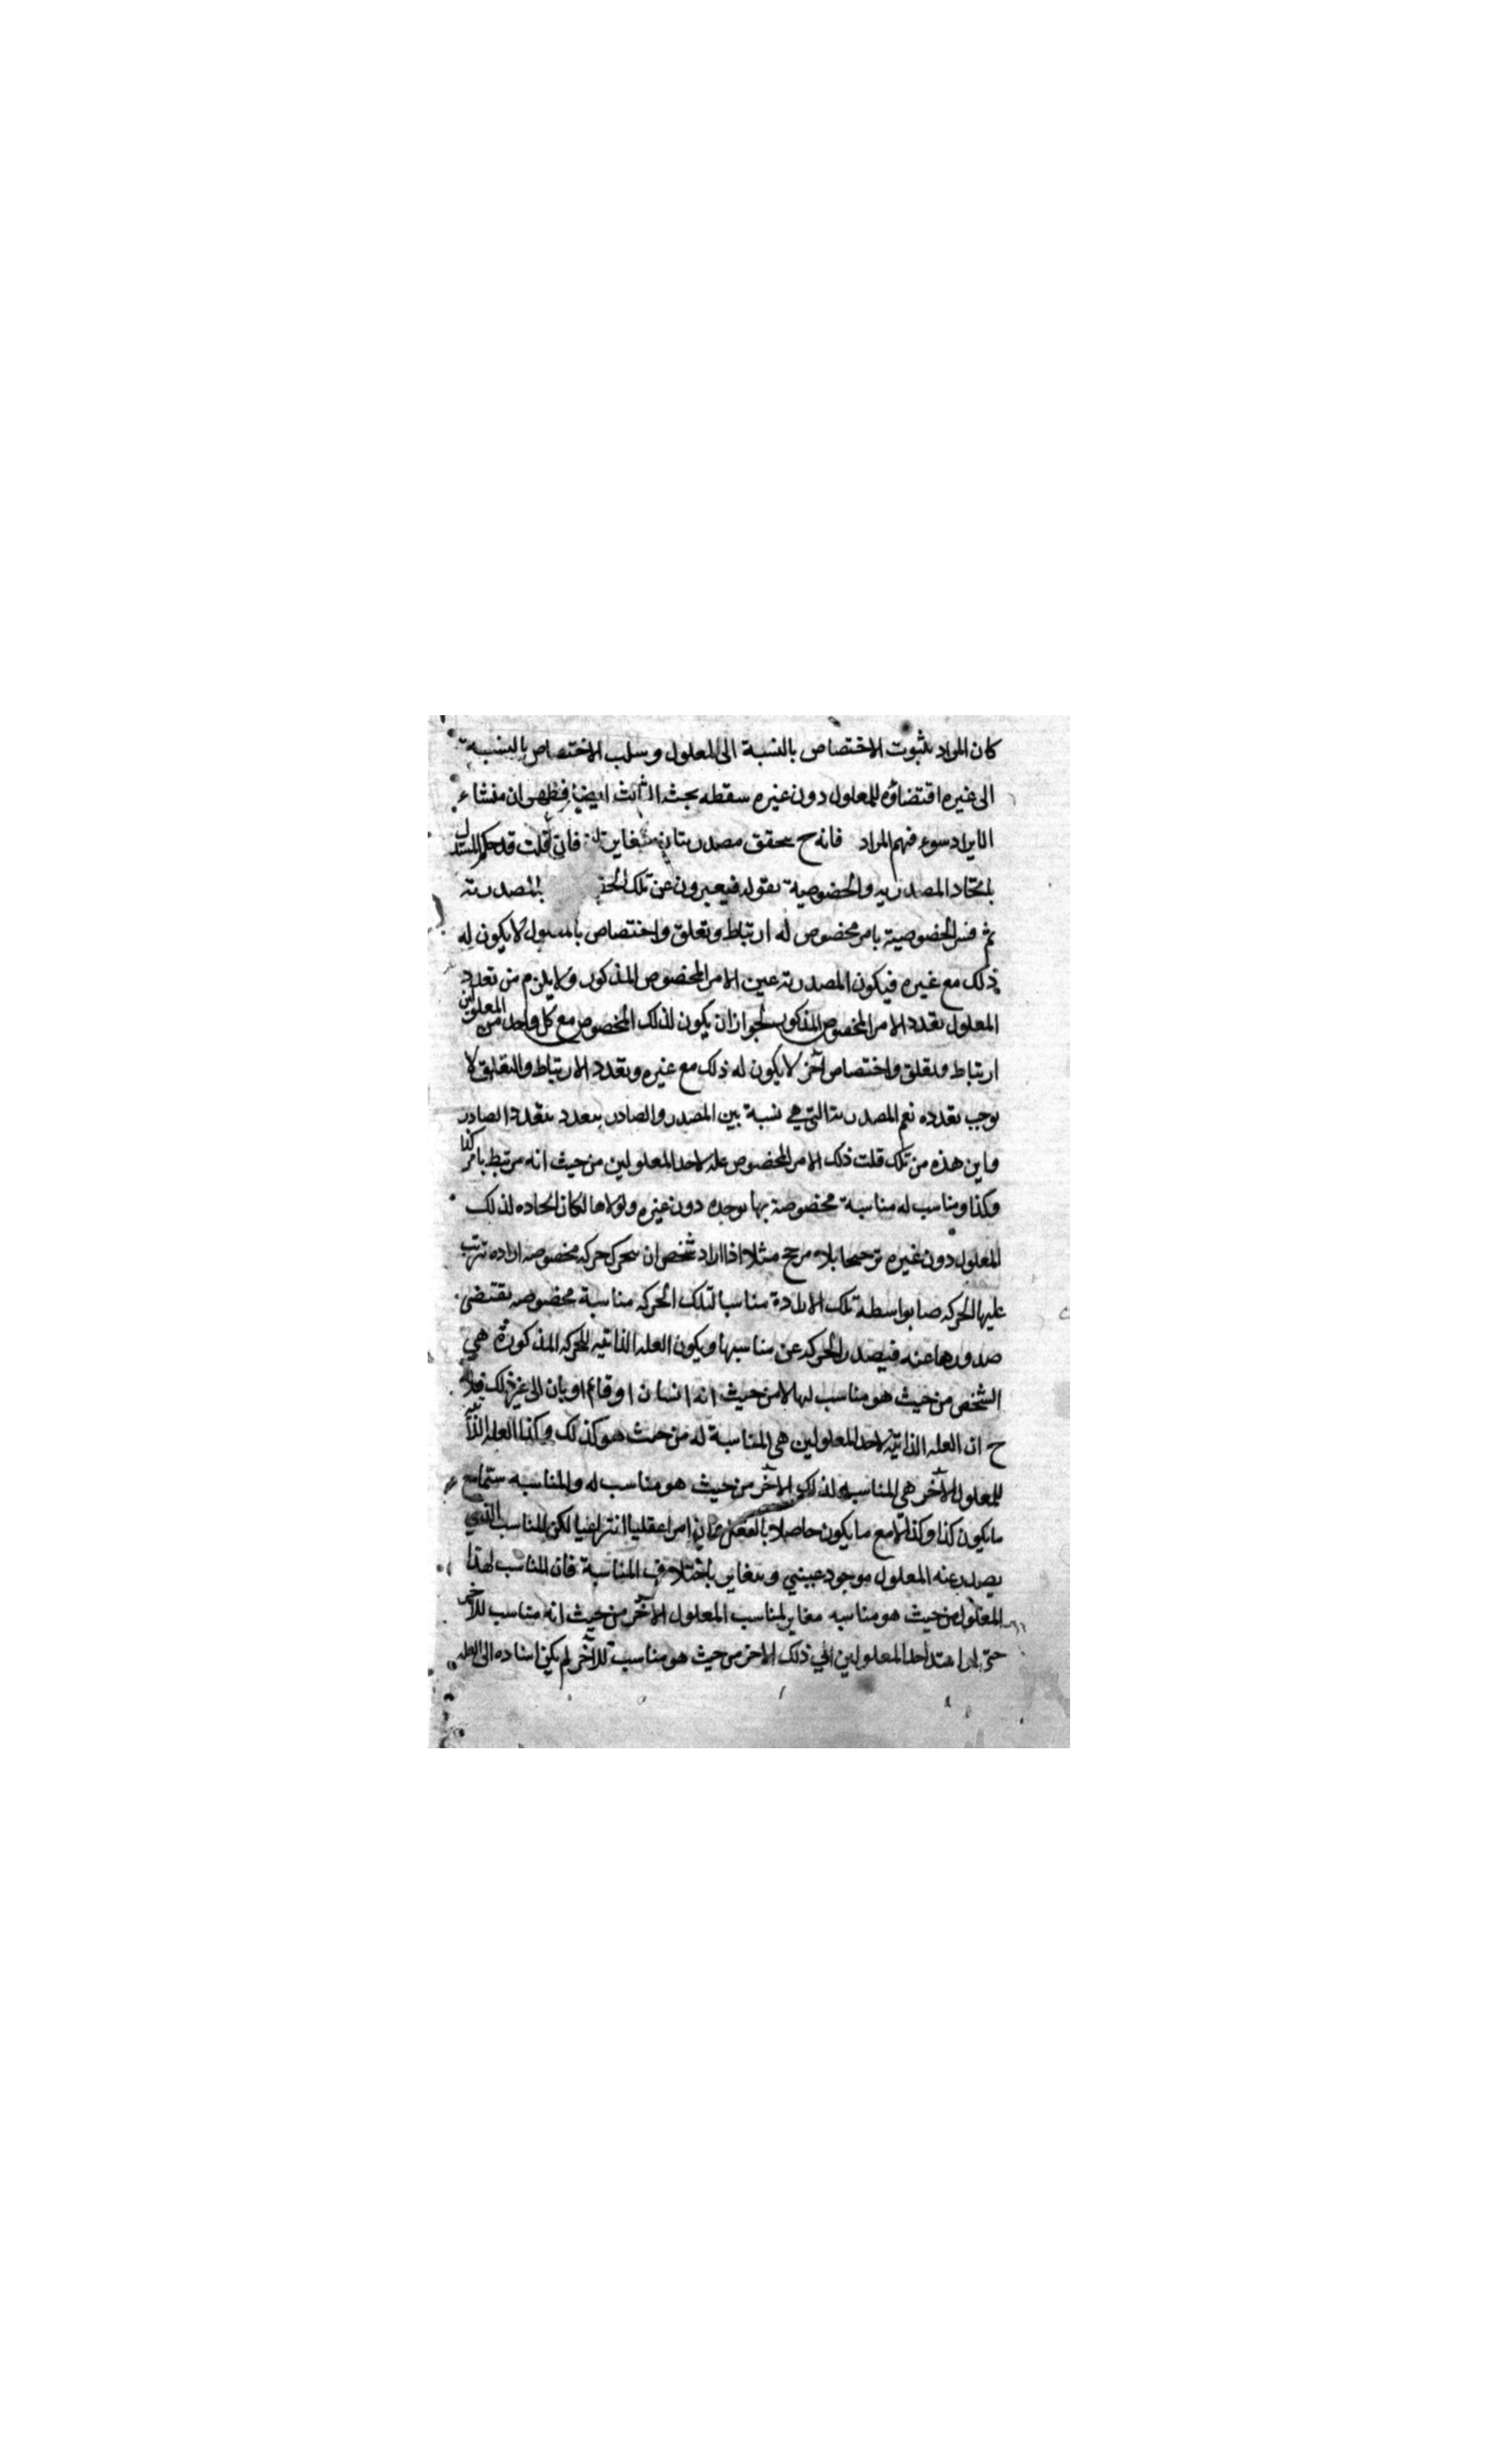 كان المراد بثبوت الاختصاص بالنسبة الى المعلول وسلب الاختصاص بالنسبة
الى غيره اقتضاؤه للمعلول دون غيره سقط بحث الثالث ايضا فظهر ان منشاء
الايراد سوء فهم المراد فانه ح يتحقق مصدريتان متغايرتان فان قلت قد حكم المستدل
باتحاد المصدريه والخصوصية بقوله فيعبرون عن تلك بالمصدرية
ثم فسر الخصوصية بامر مخصوص له ارتباط وتعلق واختصاص بالمعلول لا يكون له
ذلك مع غيره فيكون المصدرية عين الامر المخصوص المذكور ولا يلزم من تعدد
المعلول تعدد الامر المخصوص المذكور لجواز ان يكون لذلك المخصوص مع كل واحد من المعلولين
ارتباط وتعلق واختصاص آخر لا يكون له ذلك مع غيره وتعدد الارتباط والتعلق لا
يوجب تعدده نعم المصدرية التي هي نسبة بين المصدر والصادر يتعدد بتعدد الصادر
واين هذه من تلك قلت ذلك الامر المخصوص علة لاحد المعلولين من حيث انه مرتبط بامر كذا
وكذا ومناسب له مناسبة مخصوصة بها يوجده دون غيره ولولاها لكان ايجاده لذلك
المعلول دون غيره ترجيحا بلا مرجح مثلا اذا اراد شخص ان يتحرك حركه مخصوصه اراده ترتب
عليها الحركه صار بواسطة تلك الارادة مناسبا لتلك الحركه مناسبة مخصوصه يقتضى
صدورها عنه فيصدر الحركه عن مناسبها ويكون العله الذاتيه للحركه المذكورة هي
الشخص من حيث هو مناسب لها لا من حيث انه انسان او قائم او بان الى غير ذلك
ح ان العله الذاتيه لاحد المعلولين هي المناسبة له من حيث هو كذلك وكذا العله الذاتيه
للمعلول الآخر هي المناسبه لذلك الآخر من حيث هو مناسب له والمناسبه
ما يكون كذا وكذا لا مع ما يكون حاصلا بالفعل امرا عقليا انتزاعيا لكن المناسب الذي
يصدر عنه المعلول موجود عيني ويتغاير باختلاف المناسبة فان المناسب لهذا
المعلول من حيث هو مناسبه مغاير لمناسب المعلول الآخر من حيث انه مناسب للآخر
حتى اذا احد المعلولين الي ذلك الاخر من حيث هو مناسب للآخر لم يكن اسناده الى العله